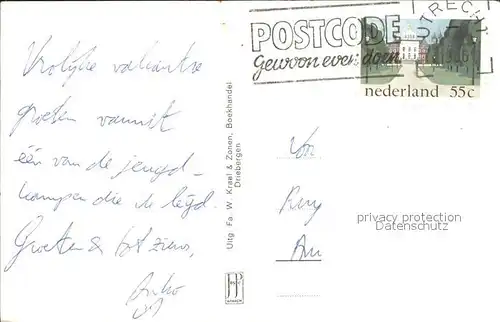 Vrolijke vakantie
groeten vanuit
één van de jeugd-
kampen die ik leid.
Groeten & tot ziens,
UTRECHT
POSTCODE
gewoon even doen
nederland 55c
Uitg. Fa. W. Kraal & Zonen, Boekhandel
Driebergen
JP
privacy protection
Datenschutz